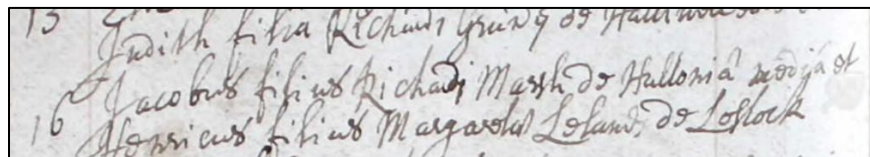 15
Judith filia Richardi Grundy de
Jacobus filius Richardi Marsh de Hultonia media et
16 Henricus filius Margaretae Leland de Lostock